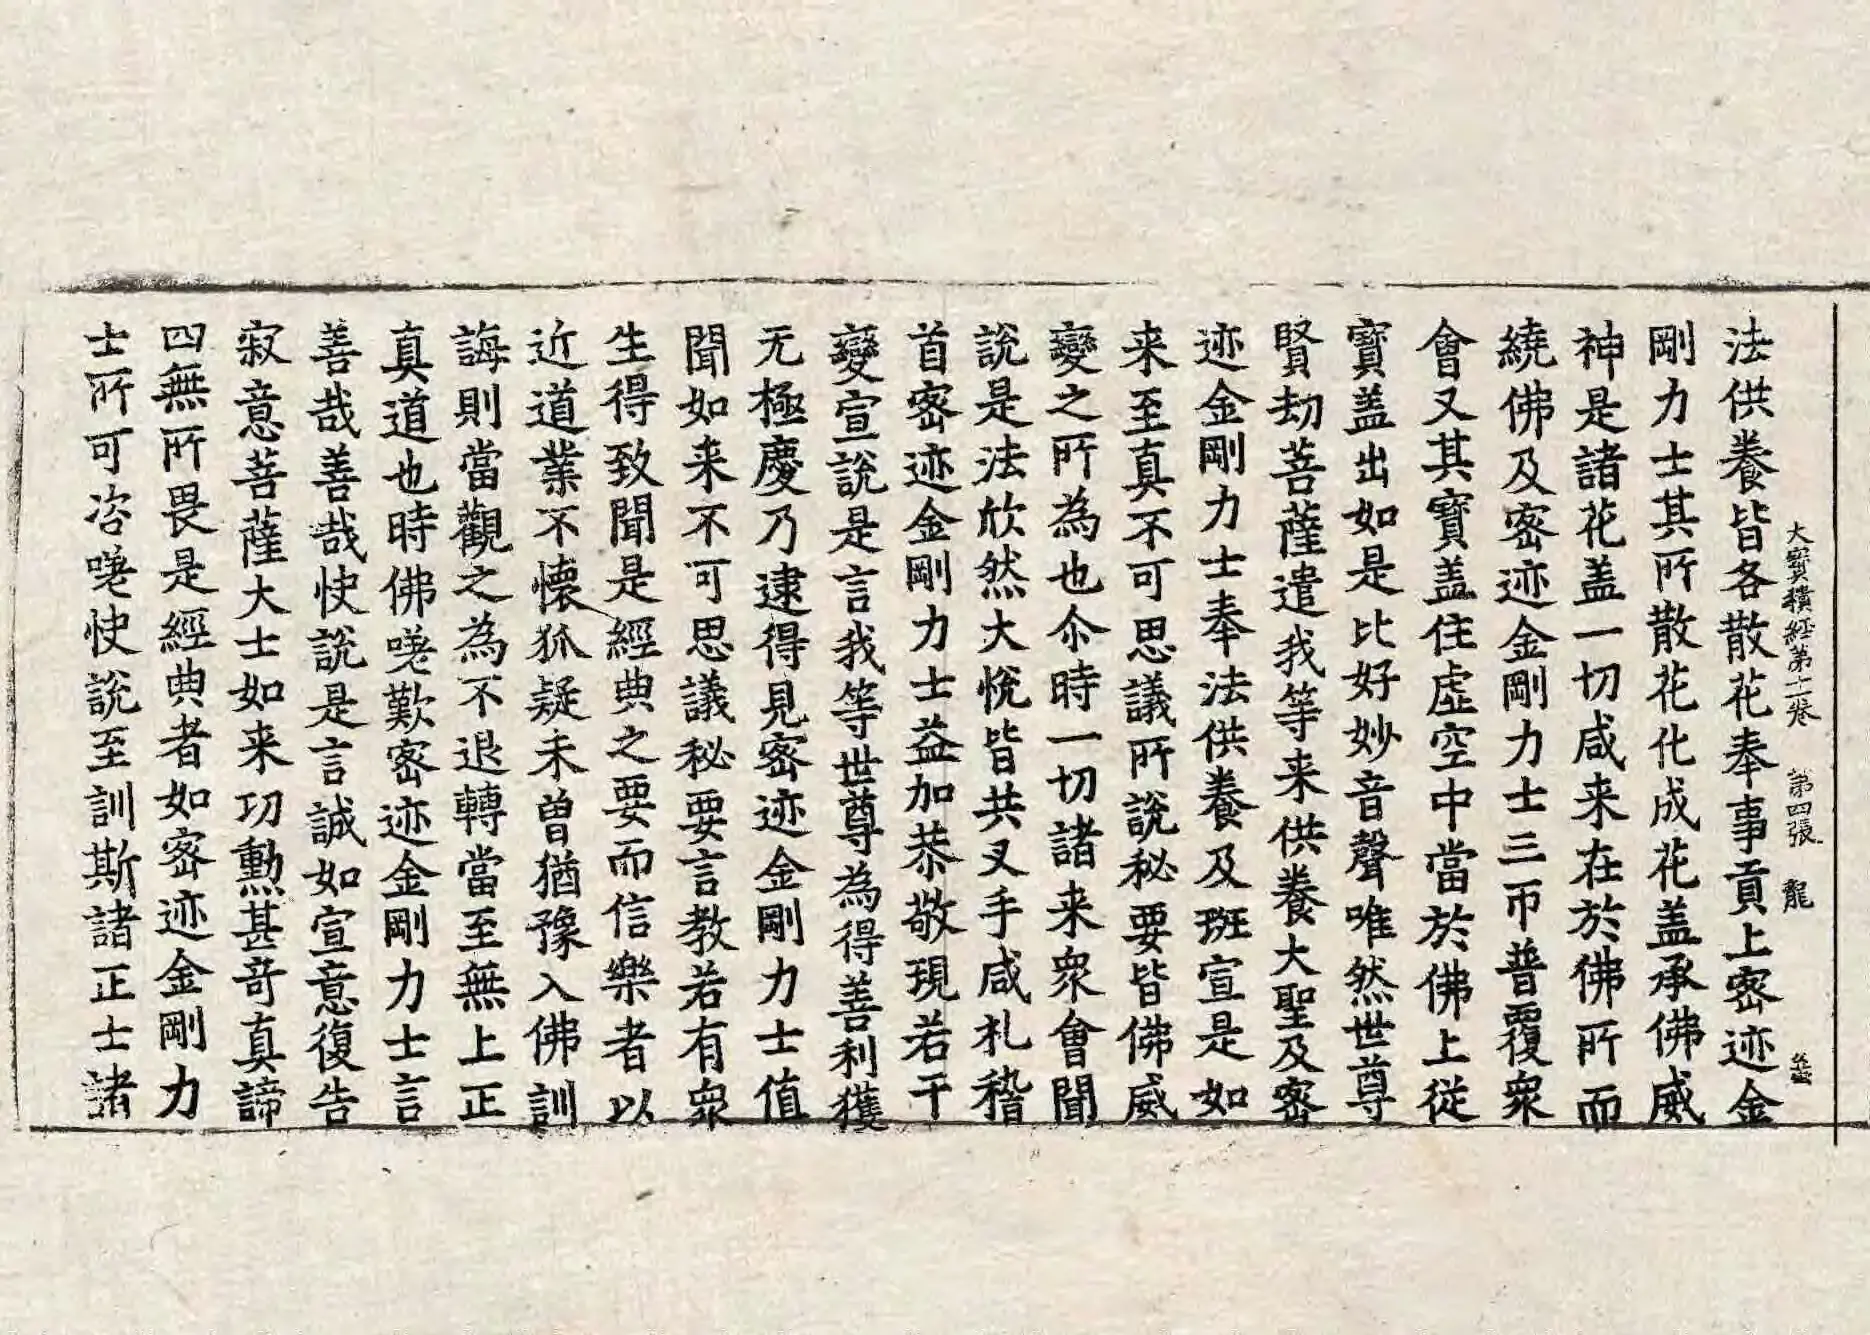 大寶積經第十二卷　第四張　龍
法供養皆各散花奉事貢上密迹金
剛力士其所散花化成花盖承佛威
神是諸花盖一切咸来在於佛所而
繞佛及密迹金剛力士三帀普覆衆
會又其寶盖住虛空中當於佛上從
寶盖出如是比好妙音聲唯然世尊
賢劫菩薩遣我等来供養大聖及密
迹金剛力士奉法供養及班宣是如
来至真不可思議所說秘要皆佛威
變之所為也尒時一切諸来衆會聞
說是法欣然大悅皆共叉手咸礼稽
首密迹金剛力士益加恭敬現若干
變宣說是言我等世尊為得善利獲
无極慶乃逮得見密迹金剛力士值
聞如来不可思議秘要言教若有衆
生得致聞是經典之要而信樂者以
近道業不懷狐疑未曾猶豫入佛訓
誨則當觀之為不退轉當至無上正
真道也時佛嘆歎密迹金剛力士言
善哉善哉快說是言誠如宣意復告
寂意菩薩大士如来功勳甚奇真諦
四無所畏是經典者如密迹金剛力
士所可咨嘆快說至訓斯諸正士諸